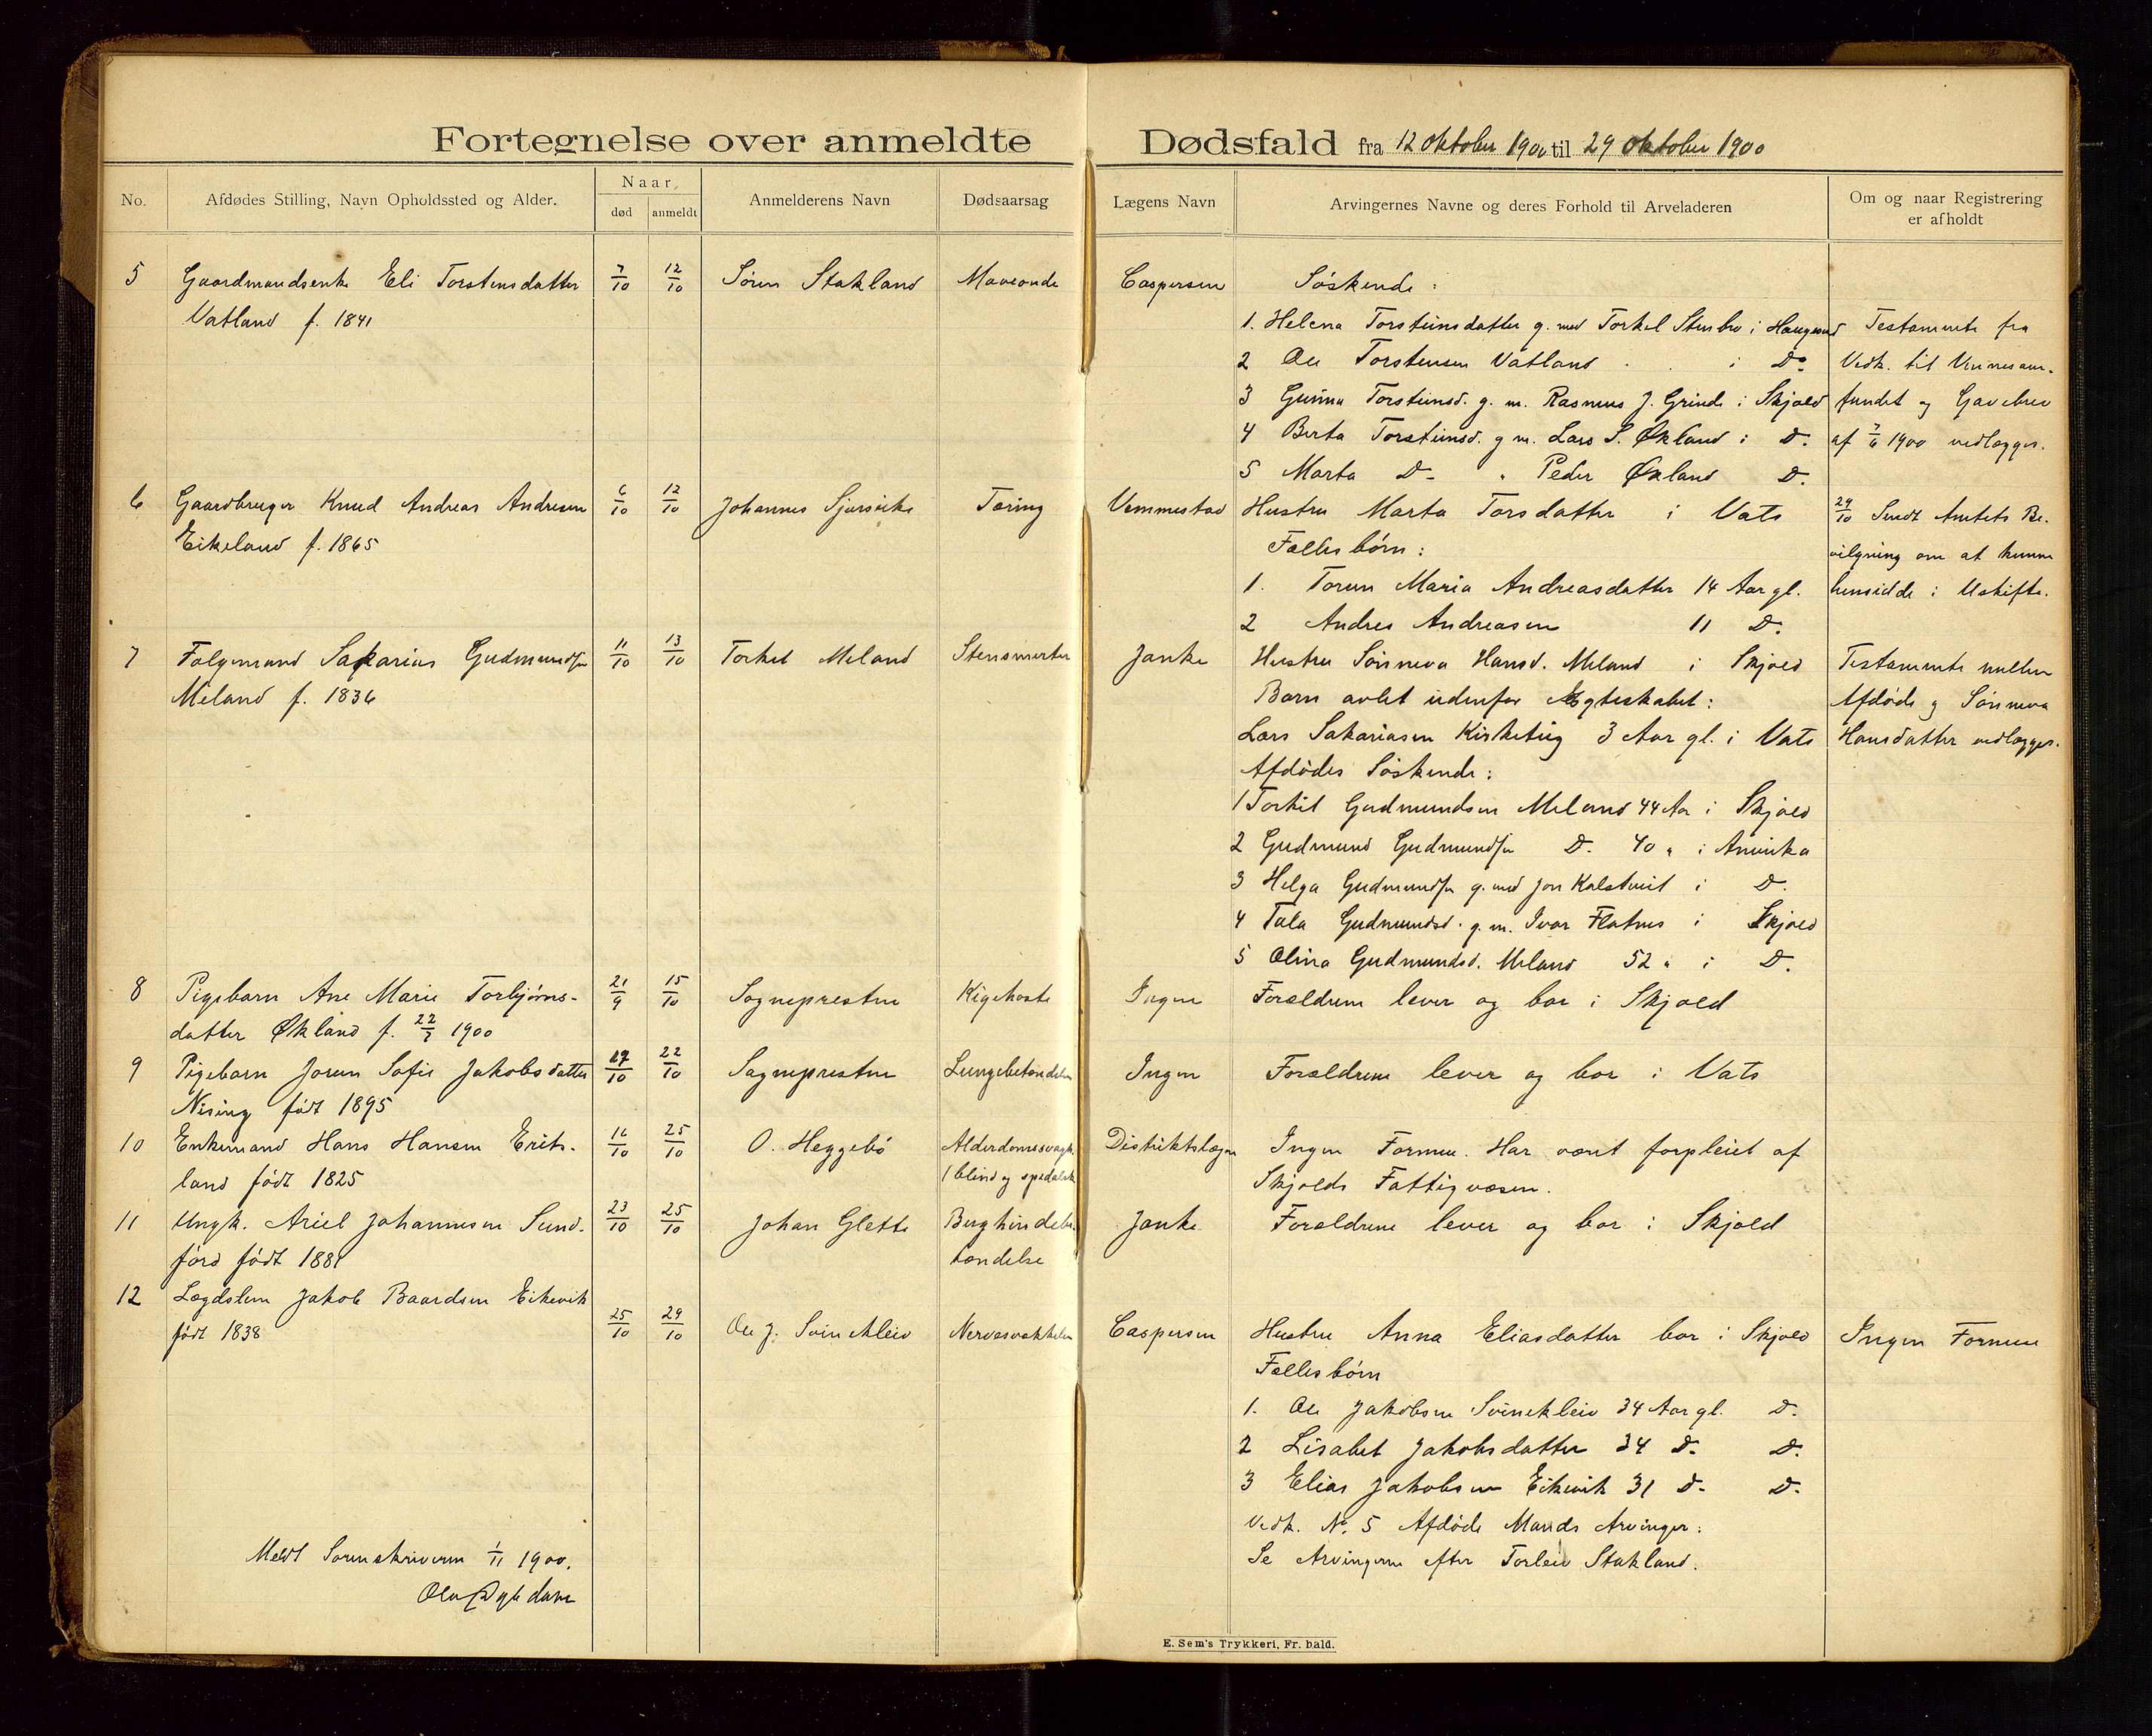 Fortegnelse over anmeldte Dødsfald fra 12 Oktober 1900 til 29 Oktober 1900
No. Afdødes Stilling, Navn Opholdssted og Alder. Naar død anmeldt Anmelderens Navn Dødsaarsag Lægens Navn Arvingernes Navne og deres Forhold til Arveladeren Om og naar Registrering er afholdt
5 Gaardmandsenke Eli Torstensdatter 7/10 12/10 Søren Stakland Maveonde Caspersen Søskende:
Vatland f. 1841
1. Helena Torsteinsdatter g. med Torkel Stensbro i Haugesund Testamente fra
2 Ole Torstensen Vatland i Do. Vedk. til Vinnesam-
3 Gunna Torsteinsd. g. m. Rasmus J. Grinde i Skjold fundet og Gavebrev
4 Berta Torsteinsd. g m. Lars S. Økland i D. af 7/6 1900 vedlægges.
5 Marta D- " Peder Økland D.
6 Gaardbruger Knud Andreas Andresen 6/10 12/10 Johannes Tæring Vemmestad Hustru Marta Torsdatter i Vats 29/10 Sendt Amtets Be-
Eikeland f. 1865 Fællesbørn: vilgning om at kunne
1. Torun Maria Andreasdatter 14 Aar gl. hensidde i Uskifte.
2 Andres Andreasen 11 D.
7 Folgemand Sakarias Gudmundsen 11/10 13/10 Torkel Meland Stensmerter Janke Hustru Sønneva Hansd. Meland i Skjold Testamente mellem
Meland f. 1836 Barn avlet udenfor Ægteskabet: Afdøde og Sønneva
Lars Sakariasen Kirketeig 3 Aar gl. i Vats Hansdatter vedlægges.
Afdødes Søskende:
1 Torkel Gudmundsen Meland 44 Aar i Skjold
2 Gudmund Gudmundsen D. 40 " i Amerika
3 Helga Gudmundsen g. med Jon Kalstveit i D.
4 Tala Gudmundsd. g. m. Ivar Flatnes i Skjold
5 Olina Gudmundsd. Meland 52 " i D.
8 Pigebarn Ane Marie Torbjørns- 21/9 15/10 Sognepresten Kighoste Ingen Forældrene lever og bor i Skjold
datter Økland f. 22/7 1900
9 Pigebarn Jorun Sofie Jakobsdatter 19/10 22/10 Sognepresten Lungebetændelse Ingen Forældrene lever og bor i Vats
Nising født 1895
10 Enkemand Hans Hansen Erits- 16/10 25/10 O. Heggebø Alderdomssvagh. Distriktslægen Ingen Formue. Har været forpleiet af
land født 1825 (blind og spedalsk Skjolds Fattigvæsen.
11 Ungk. Ariel Johannesen Sund- 23/10 25/10 Johan Glette Bryghindebe- Janke Forældrene lever og bor i Skjold
førd født 1881 tændelse
12 Lægdslem Jakob Baardsen Eikevik
født 1838 25/10 29/10 Ole J. Svinekleiv Nervesvækkelse Caspersen Hustru Anna Eliasdatter bor i Skjold Ingen Formue
Fællesbørn
1. Ole Jakobsen Svinekleiv 34 Aar gl. D.
2 Lisabet Jakobsdatter 34 D. D.
3 Elias Jakobsen Eikevik 31 D. D.
Vedk. No. 5 Afdøde Mands Arvinger:
Meldt Sorenskriveren 1/11 1900. Se Arvingerne efter Torleiv Stakland.
E. Sem's Trykkeri, Fr. hald.